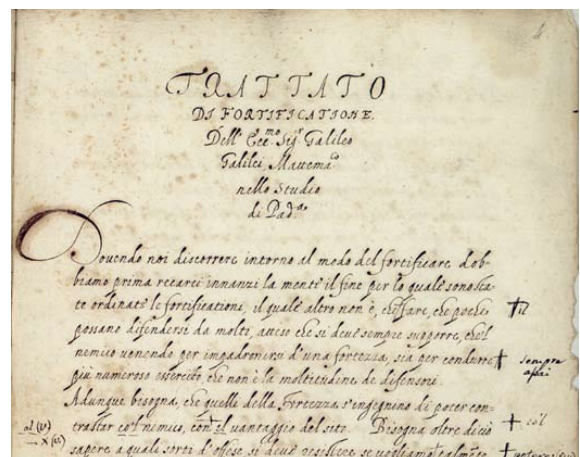 TRATTATO
DI FORTIFICATIONE.
Dell' Ecc.mo Sig.r Galileo
Galilei Matema.co
nello Studio
di Pad.a
Douendo noi discorrere intorno al modo del fortificare dob-
biamo prima recarci innanzi la mente il fine per lo quale sono sta-
te ordinate le fortificationi, il quale altro non è, che fare, che pochi † il
possano difendersi da molti, atteso che si deue sempre supporre, che'l
nemico uenendo per impadronirsi d'una fortezza, sia per condurre † sempre
assai
più numeroso essercito che non è la moltitudine de difensori.
Adunque bisogna, che quelli della Fortezza s'ingegnino di poter con-
trastar co'l nemico, con el uantaggio del sito. Bisogna oltre di ciò † co'l
sapere a quali sorti d'offese si deue resistere se uogliamo